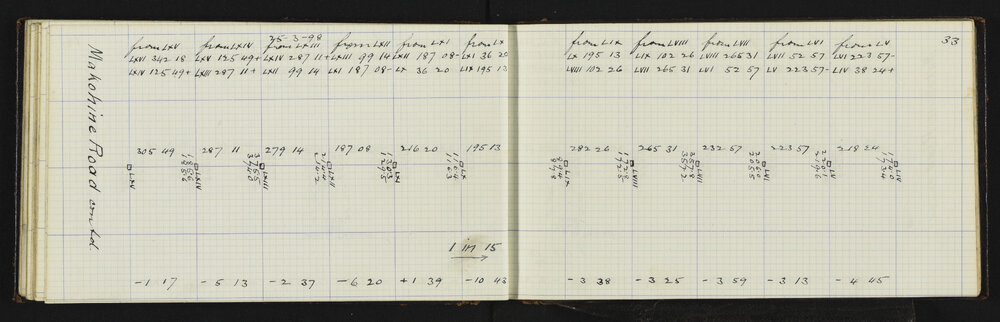 33
25-3-98
from LXV from LXIV from LXIII from LXII from LXI from LX from LIX from LVIII from LVII from LVI from LV
LXVI 342 18 LXV 125 49+ LXIV 287 11+ LXIII 99 14+ LXII 187 08- LXI 36 20 LX 195 13 LIX 102 26 LVIII 265 31 LVII 52 57 LVI 223 57-
LXIV 125 49+ LXIII 287 11+ LXII 99 14 LXI 187 08- LX 36 20 LIX 195 13 LVIII 102 26 LVII 265 31 LVI 52 57 LV 223 57- LIV 38 24+
Makohine Road contd.
305 49 287 11 279 14 187 08 216 20 195 13 282 26 265 31 232 57 223 57 218 24
LXV LXIV LXIII LXII LXI LX LIX LVIII LVII LVI LV
1 in 15
-1 17 -5 13 -2 37 -6 20 +1 39 -10 43 -3 38 -3 25 -3 59 -3 13 -4 45